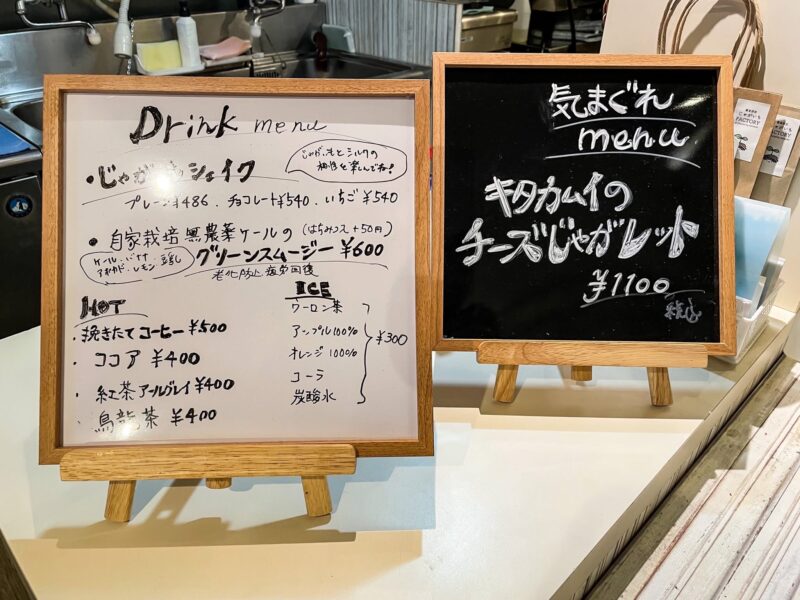 Drink menu
・じゃがいもシェイク
じゃがいもとミルクの
相性を楽しんでね!
プレーン¥486 . チョコレート¥540 . いちご ¥540
・自家栽培 無農薬ケールの (はちみつ入 +50円)
グリーンスムージー ¥600
ケール・バナナ
アボカド・レモン・豆乳
老化防止 疲労回復
HOT
・挽きたてコーヒー ¥500
・ココア ¥400
・紅茶 アールグレイ ¥400
・烏龍茶 ¥400
ICE
ウーロン茶
アップル100%
オレンジ100%
コーラ
炭酸水
¥300
気まぐれ
menu
キタカムイの
チーズじゃがレット
¥1100
税込
じゃがいも
FACTORY